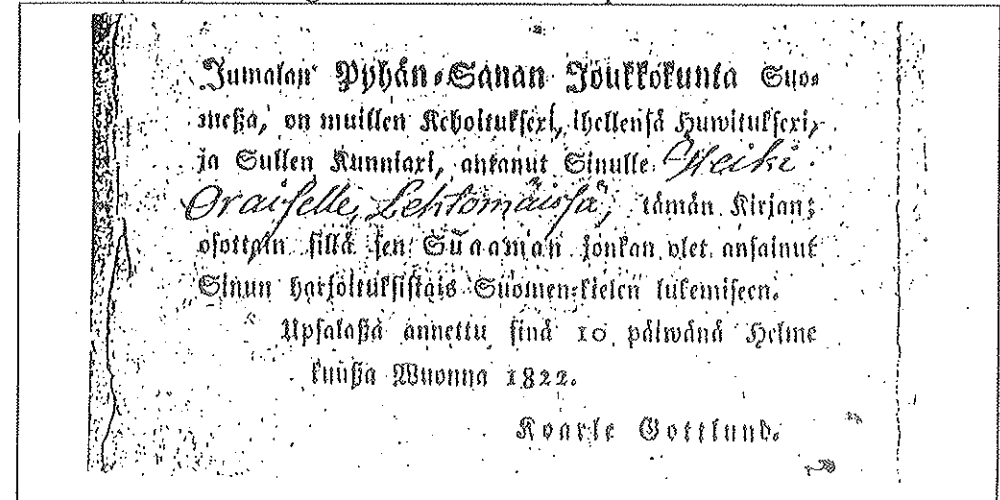 Jumalan Pyhän-Sanan Joukkokunta Suo-
meßa, on muillen Kehoitukseri, ihellensä Huwitukseri,
ja Sullen Kunniari, antanut Sinulle Heiki
Oraiselle, Lehtomäissä, tämän Kirjan;
osottain sillä sen Suaaman jonkan olet ansainut
Sinun harjoituksistais Suomen-kielen lukemiseen.
Upsalaßa annettu sinä 10 päiwänä Helme
kuußa Wuonna 1822.
Kaarle Gottlund.